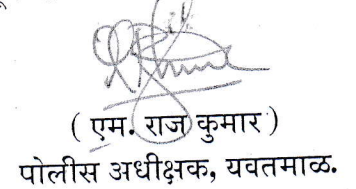 ( एम. राज कुमार )
पोलीस अधीक्षक, यवतमाळ.